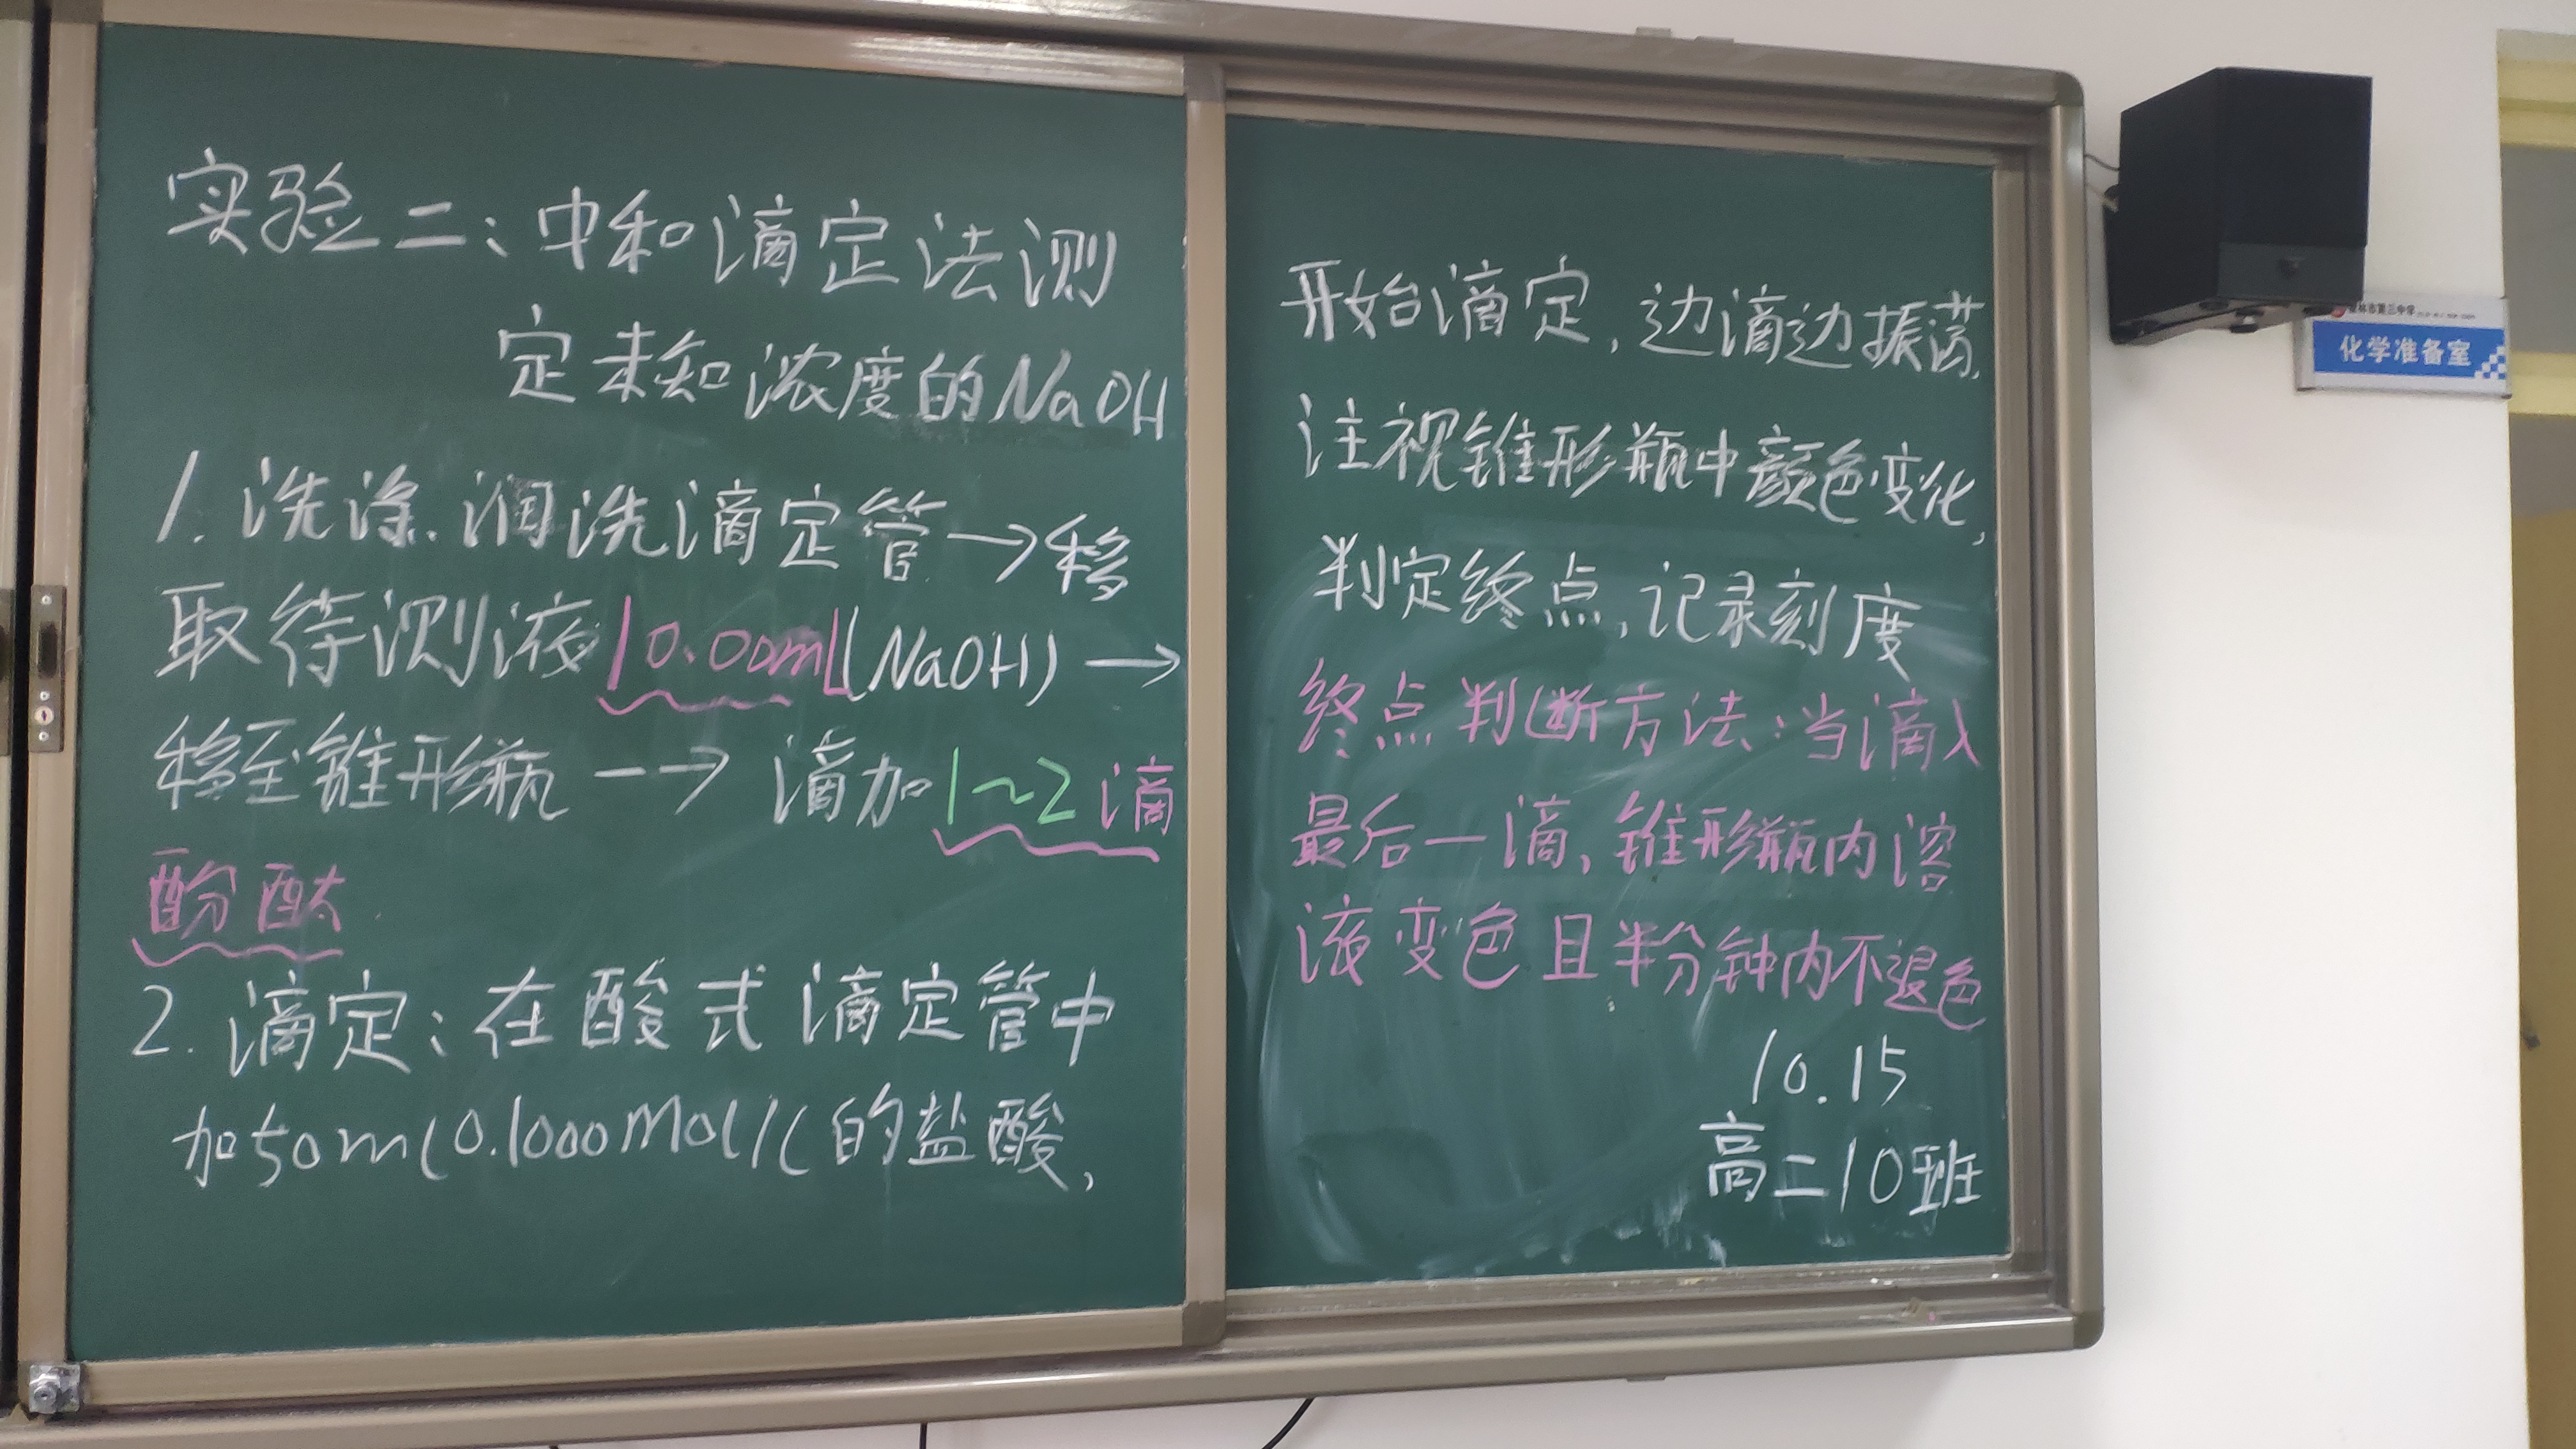 实验二：中和滴定法测
定未知浓度的NaOH
1. 洗涤.润洗滴定管→移
取待测液10.00mL(NaOH)→
移至锥形瓶→滴加1~2滴
酚酞
2. 滴定：在酸式滴定管中
加50ml 0.1000mol/L的盐酸,
开始滴定,边滴边振荡,
注视锥形瓶中颜色变化,
判定终点,记录刻度
终点判断方法：当滴入
最后一滴,锥形瓶内溶
液变色且半分钟内不退色
10.15
高二10班
林市第三中学
化学准备室